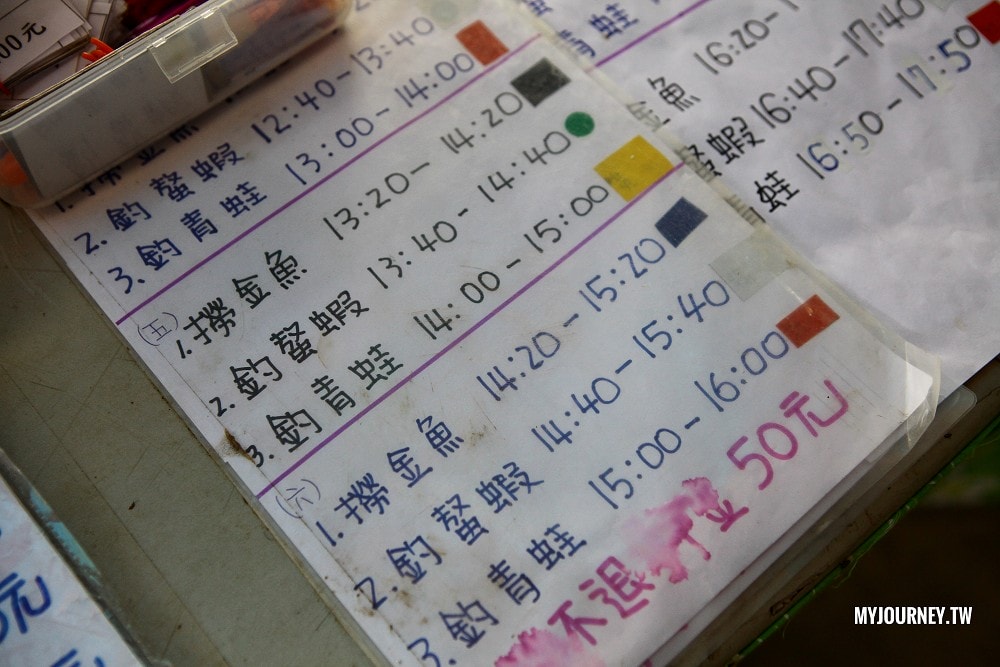 00元
2.釣螯蝦 12:40-13:40
3.釣青蛙 13:00-14:00
(五)
1.撈金魚 13:20-14:20
2.釣螯蝦 13:40-14:40
3.釣青蛙 14:00-15:00
(六)
1.撈金魚 14:20-15:20
2.釣螯蝦 14:40-15:40
3.釣青蛙 15:00-16:00
不退 50元
青蛙
金魚 16:20-1
螯蝦 16:40-17:40
青蛙 16:50-17:50
元
元
MYJOURNEY.TW